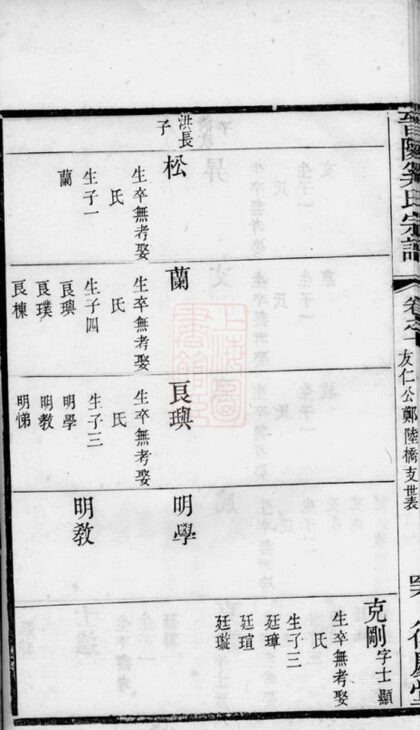 晉陵
氏宗譜
卷之十
友仁公鄭陸橋支世表
洪長
子
松
生卒無考娶
氏
生子一
蘭
蘭
生卒無考娶
氏
生子四
良璵
良璞
良棟
良璵
生卒無考娶
氏
生子三
明學
明教
明悌
明學
明教
克剛
字士顯
生卒無考娶
氏
生子三
廷璋
廷瑄
廷璇
上海圖書館藏